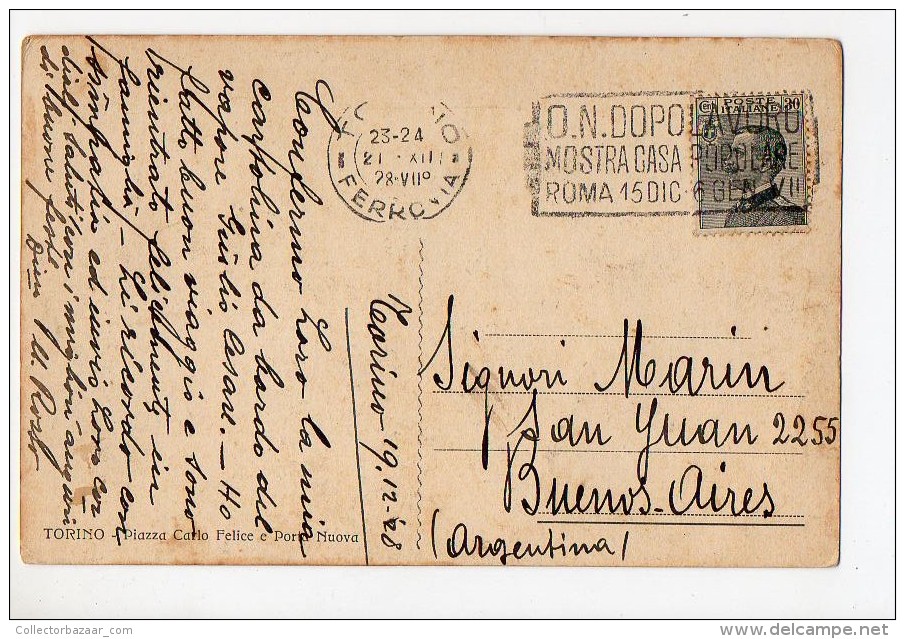 Confermo Loro la mia
cartolina da bordo del
vapore Giulio Cesare. – Ho
fatto buon viaggio e sono
rientrato felicemente in
famiglia – Li ricordo con
simpatia ed invio Loro cor-
diali saluti con i migliori auguri
di buone feste.
Torino 19.12.28
TORINO - Piazza Carlo Felice e Porta Nuova
23-24
21 XII
28-VII°
FERROVIA
O.N. DOPOLAVORO
MOSTRA CASA POPOLARE
ROMA 15 DIC-6 GEN. VII
POSTE
ITALIANE
30
Signori Marin
San Yuan 2255
Buenos-Aires
(Argentina)
CollectorBazaar.com
delcampe.net